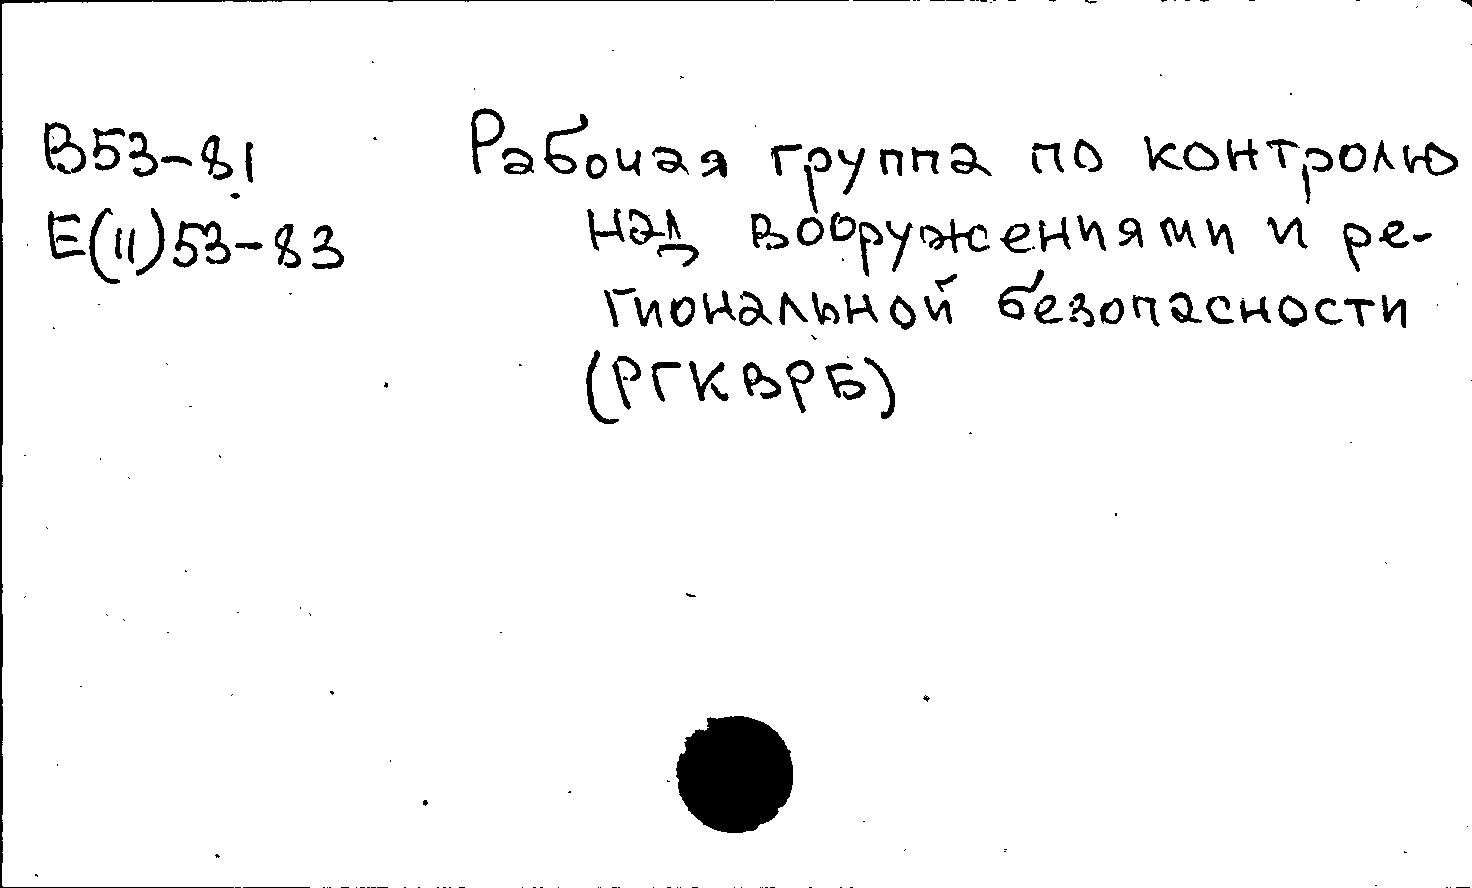 В53-81 Рабочая группа по контролю
Е(II)53-83 над вооружениями и ре-
гиональной безопасности
(РГКВРБ)